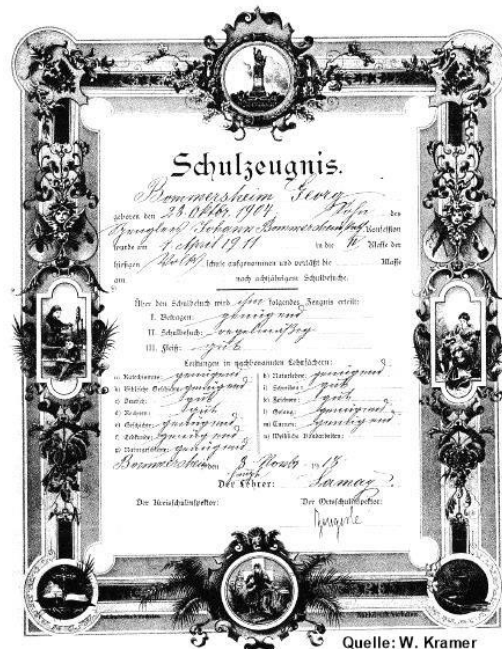 Schulzeugnis.
Bommersheim Georg
geboren den 28. Oktbr. 1904 Sohn des
Spenglers Johann Bommersheim kath. Konfession
wurde am 1 April 1911 in die Klasse der
hiesigen Volks schule aufgenommen und verläßt die Klasse
am nach achtjährigem Schulbesuche.
Über den Schulbesuch wird ihm folgendes Zeugnis erteilt:
I. Betragen: genügend
II. Schulbesuch: regelmäßig
III. Fleiß: gut
Leistungen in nachbenannten Lehrfächern:
a) Katechismus: genügend
b) Biblische Geschichte: genügend
c) Deutsch: gut
d) Rechnen: gut
e) Geschichte: genügend
f) Erdkunde: genügend
g) Naturgeschichte: genügend
h) Naturlehre: genügend
i) Schreiben: gut
k) Zeichnen: gut
l) Gesang: genügend
m) Turnen: genügend
n) Weibliche Handarbeiten:
Bommersheim den 3 Novbr. 1918
Der Lehrer:
Der Kreisschulinspektor:
Der Ortsschulinspektor:
Quelle: W. Kramer